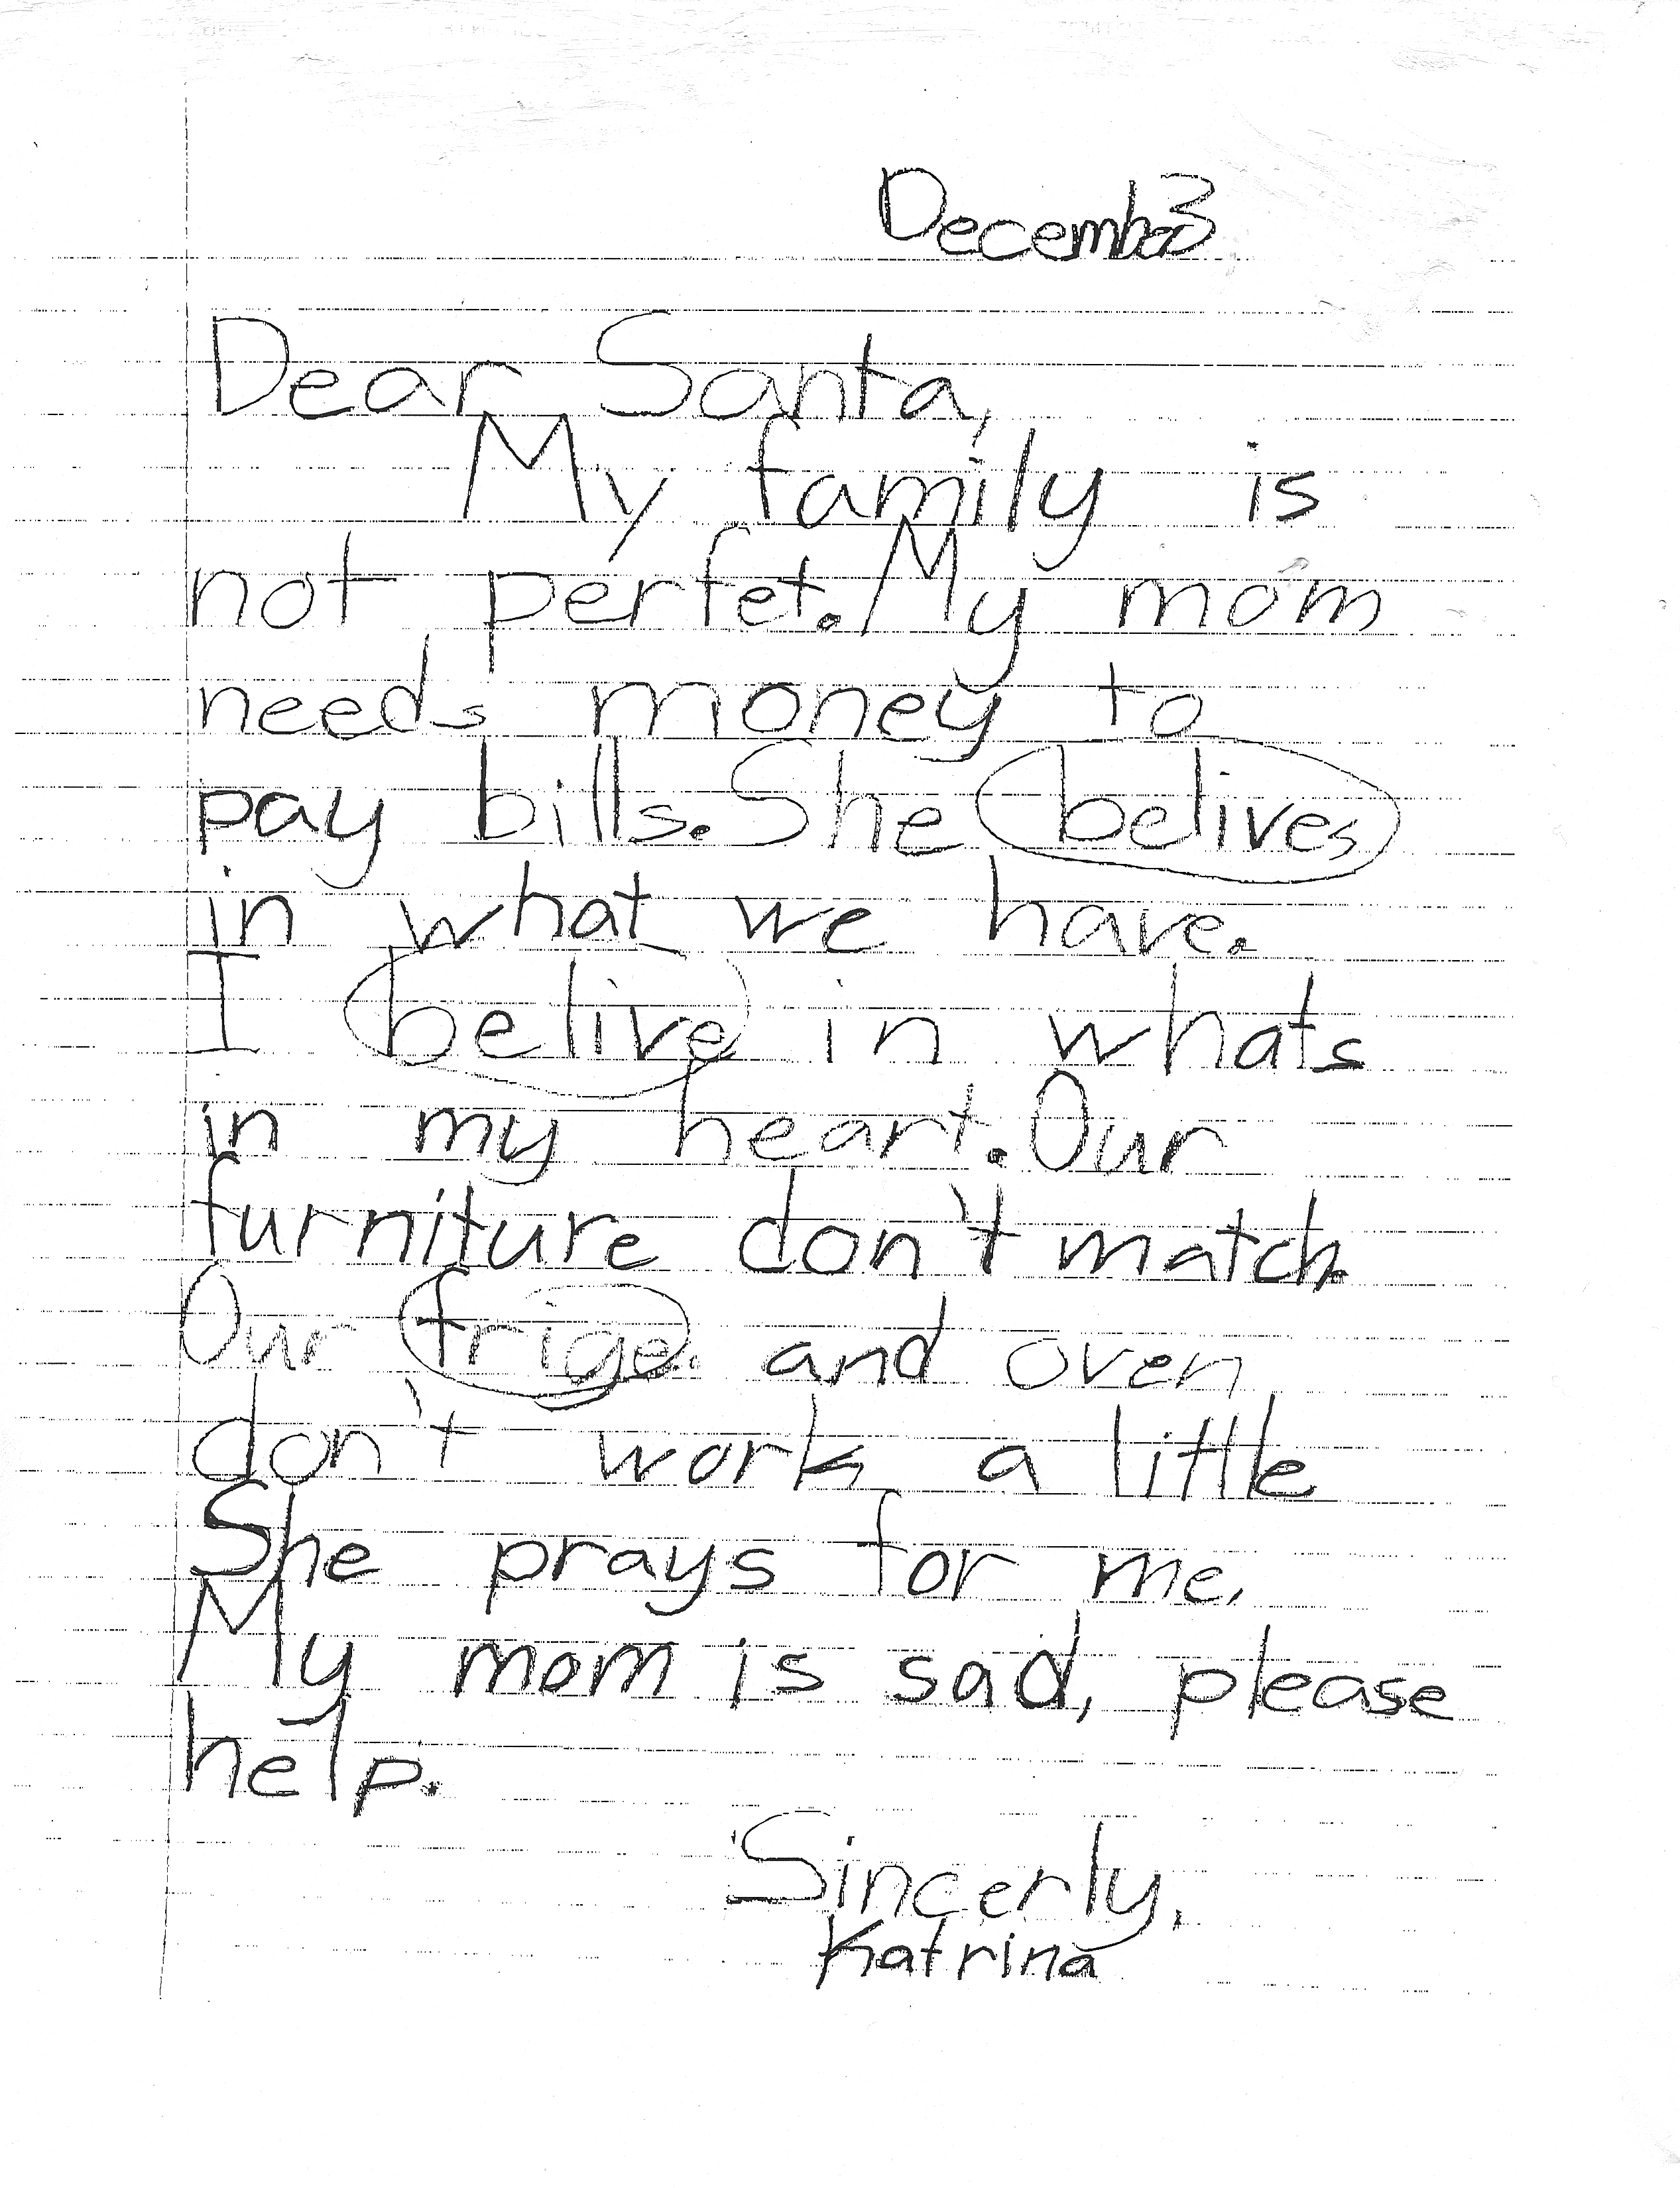 December 3
Dear Santa,
My family is
not perfet. My mom
needs money to
pay bills. She belives
in what we have.
I belive in whats
in my heart. Our
furniture don't match.
Our frige. and oven
don't work a little
She prays for me.
My mom is sad, please
help.
Sincerly,
Katrina